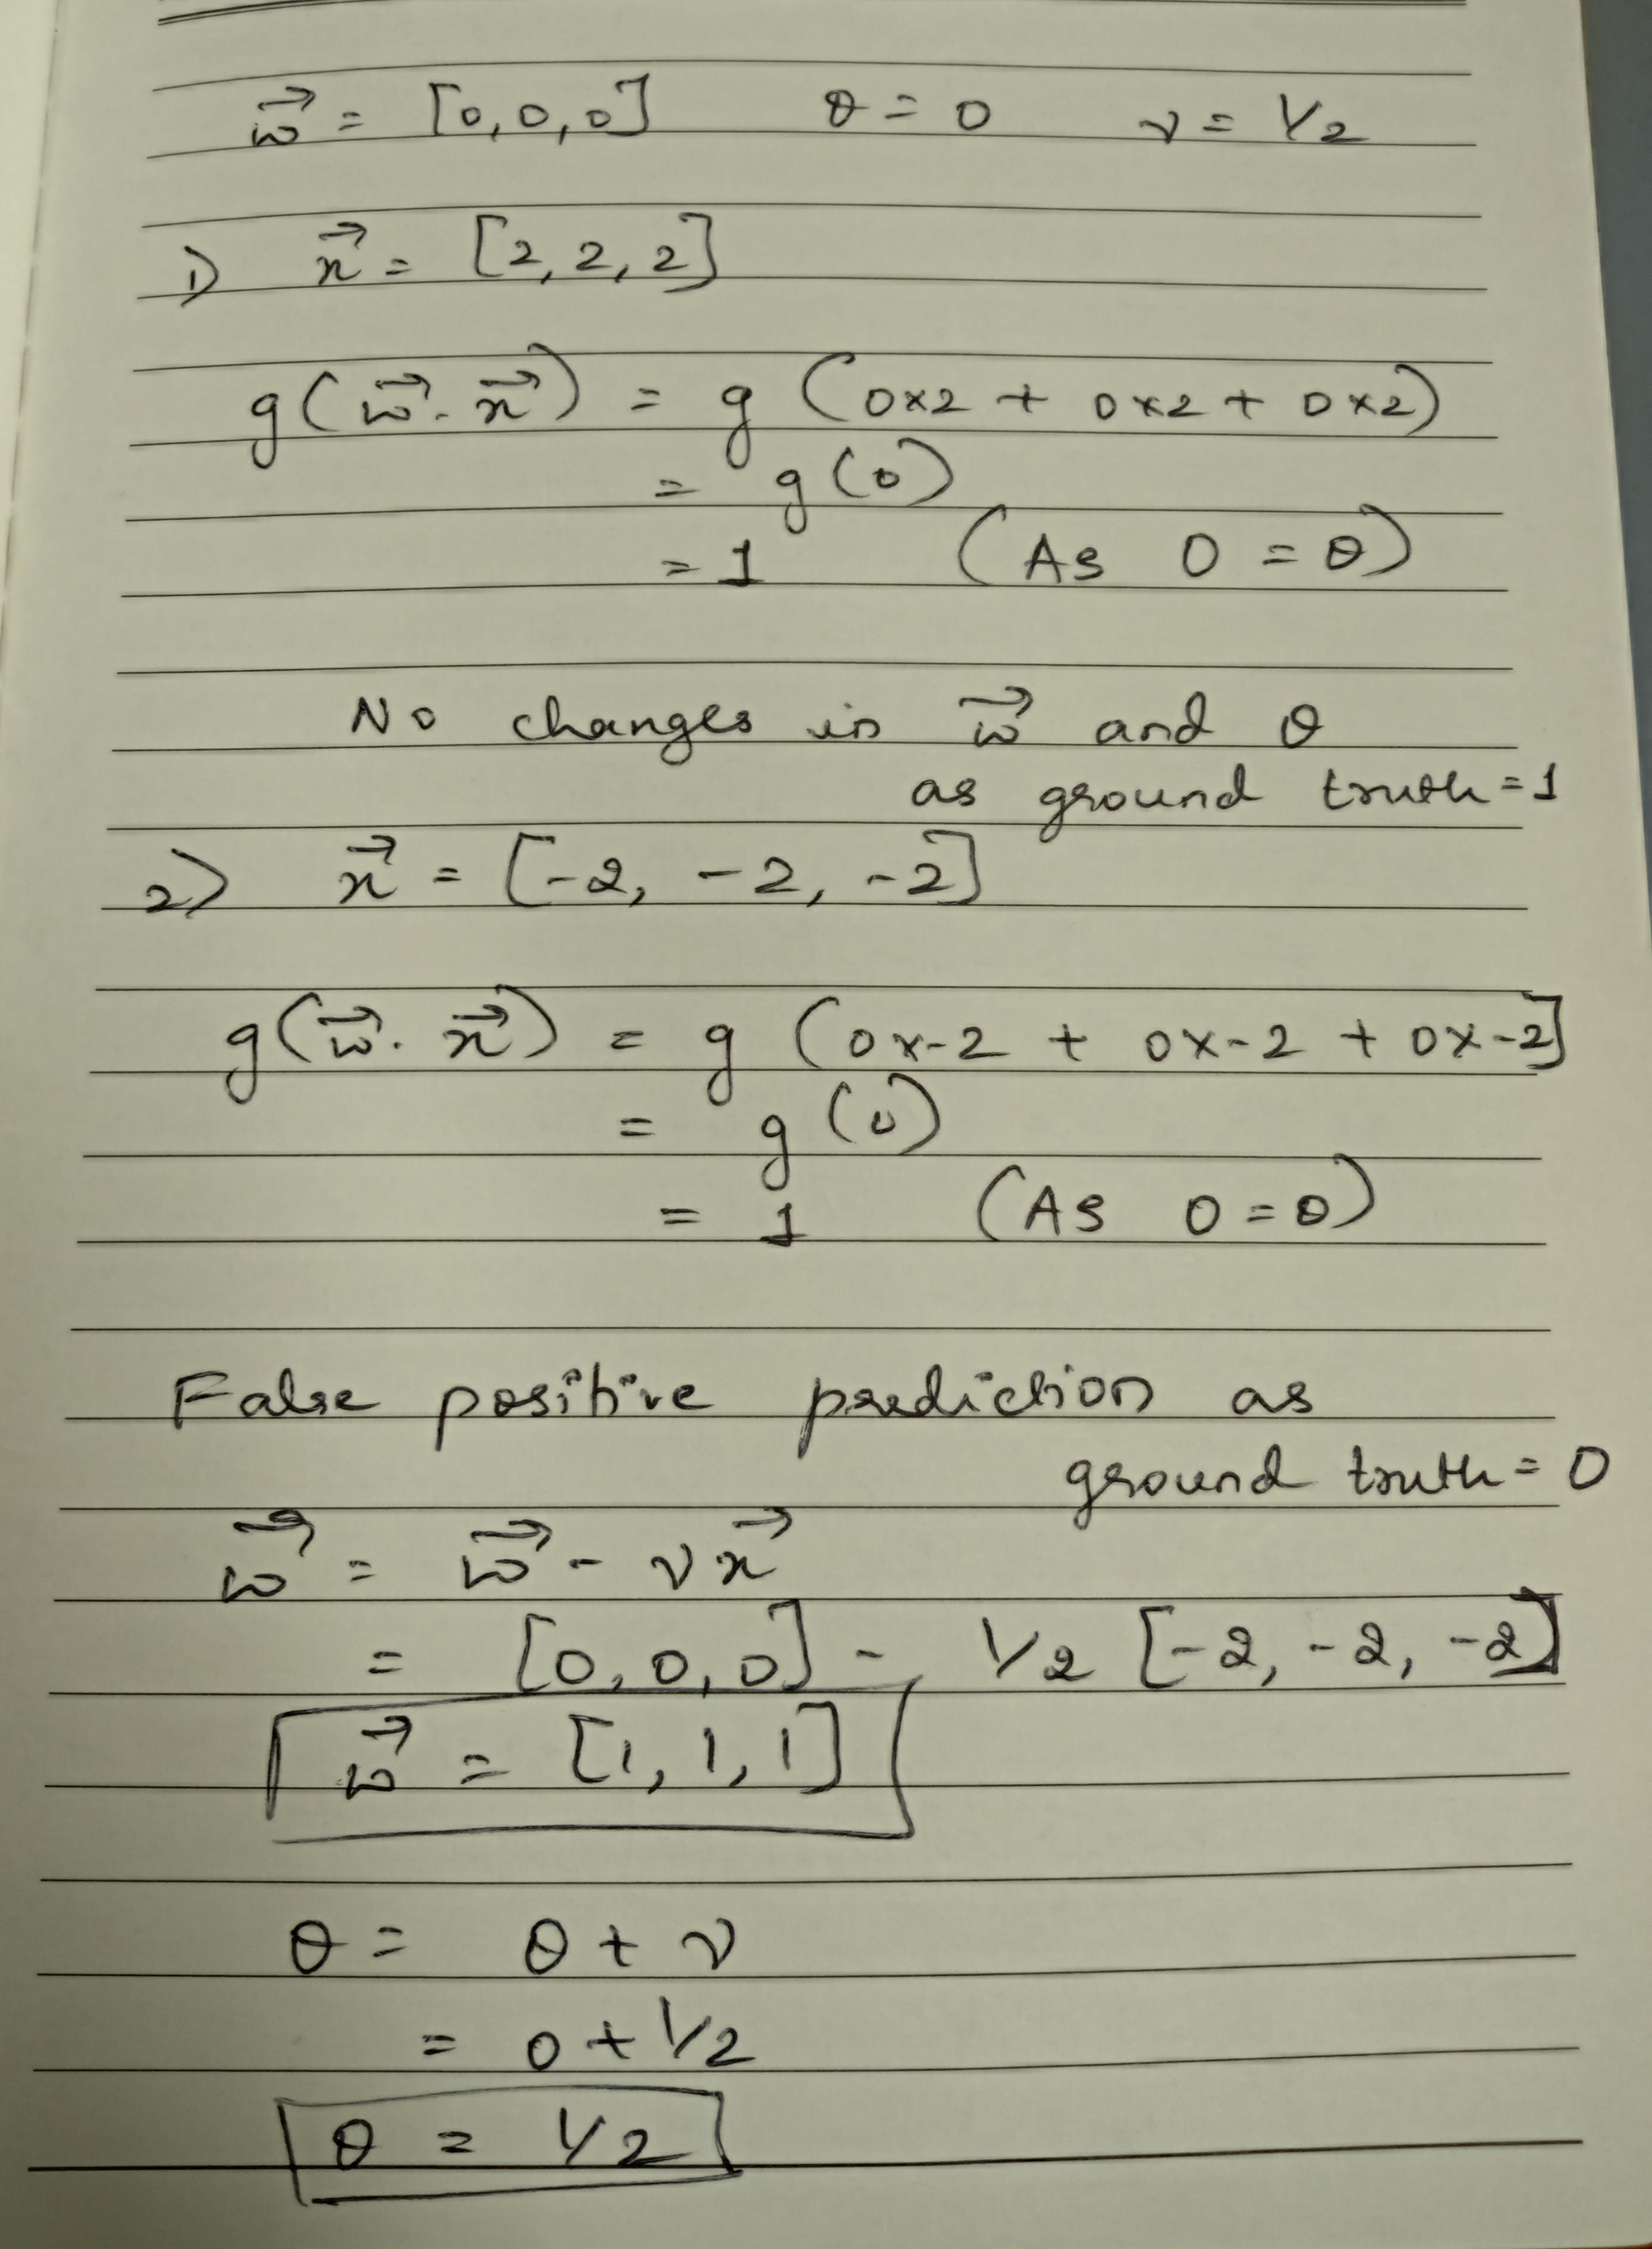 w⃗ = [0, 0, 0] θ = 0 ν = 1/2
1) x⃗ = [2, 2, 2]
g(w⃗. x⃗) = g (0×2 + 0×2 + 0×2)
= g(0)
= 1 (As 0 = θ)
No changes in w⃗ and θ
as ground truth = 1
2) x⃗ = [-2, -2, -2]
g(w⃗. x⃗) = g (0×-2 + 0×-2 + 0×-2]
= g(0)
= 1 (As 0 = θ)
False positive prediction as
ground truth = 0
w⃗ = w⃗ - νx⃗
= [0, 0, 0] - 1/2 [-2, -2, -2]
w⃗ = [1, 1, 1]
θ = θ + ν
= 0 + 1/2
θ = 1/2